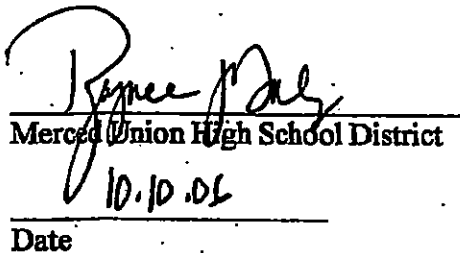 Merced Union High School District
10.10.06
Date